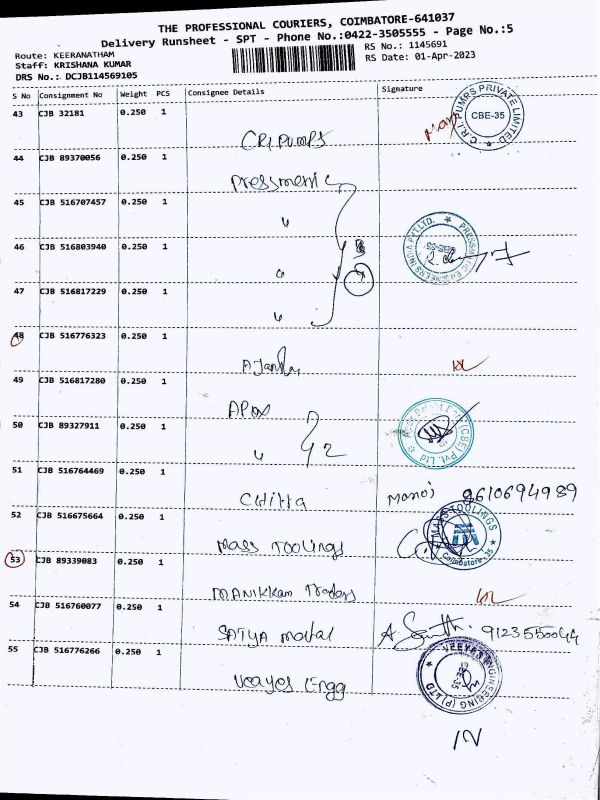 THE PROFESSIONAL COURIERS, COIMBATORE-641037
Delivery Runsheet - SPT - Phone No.:0422-3505555 - Page No.:5
Route: KEERANATHAM
RS No.: 1145691
Staff: KRISHANA KUMAR
RS Date: 01-Apr-2023
DRS No.: DCJB114569105
S No Consignment No Weight PCS Consignee Details Signature
43 CJB 32181 0.250 1
C.R.I. PUMPS PRIVATE LIMITED
CBE-35
CRI PUMPS
44 CJB 89370056 0.250 1
Pressmetic
45 CJB 516707457 0.250 1
"
46 CJB 516803940 0.250 1
"
47 CJB 516817229 0.250 1
"
48 CJB 516776323 0.250 1
49 CJB 516817280 0.250 1
50 CJB 89327911 0.250 1
" 2
51 CJB 516764469 0.250 1
Chitta Manoj 8610694989
52 CJB 516675664 0.250 1
MASS TOOLINGS
Coimbatore-35
Mass Toolings
53 CJB 89339083 0.250 1
MANIKKam Traders
54 CJB 516760077 0.250 1
SATYA metal 9123550044
55 CJB 516776266 0.250 1
ENGINEERING (P) LTD
Veayes Engg
12